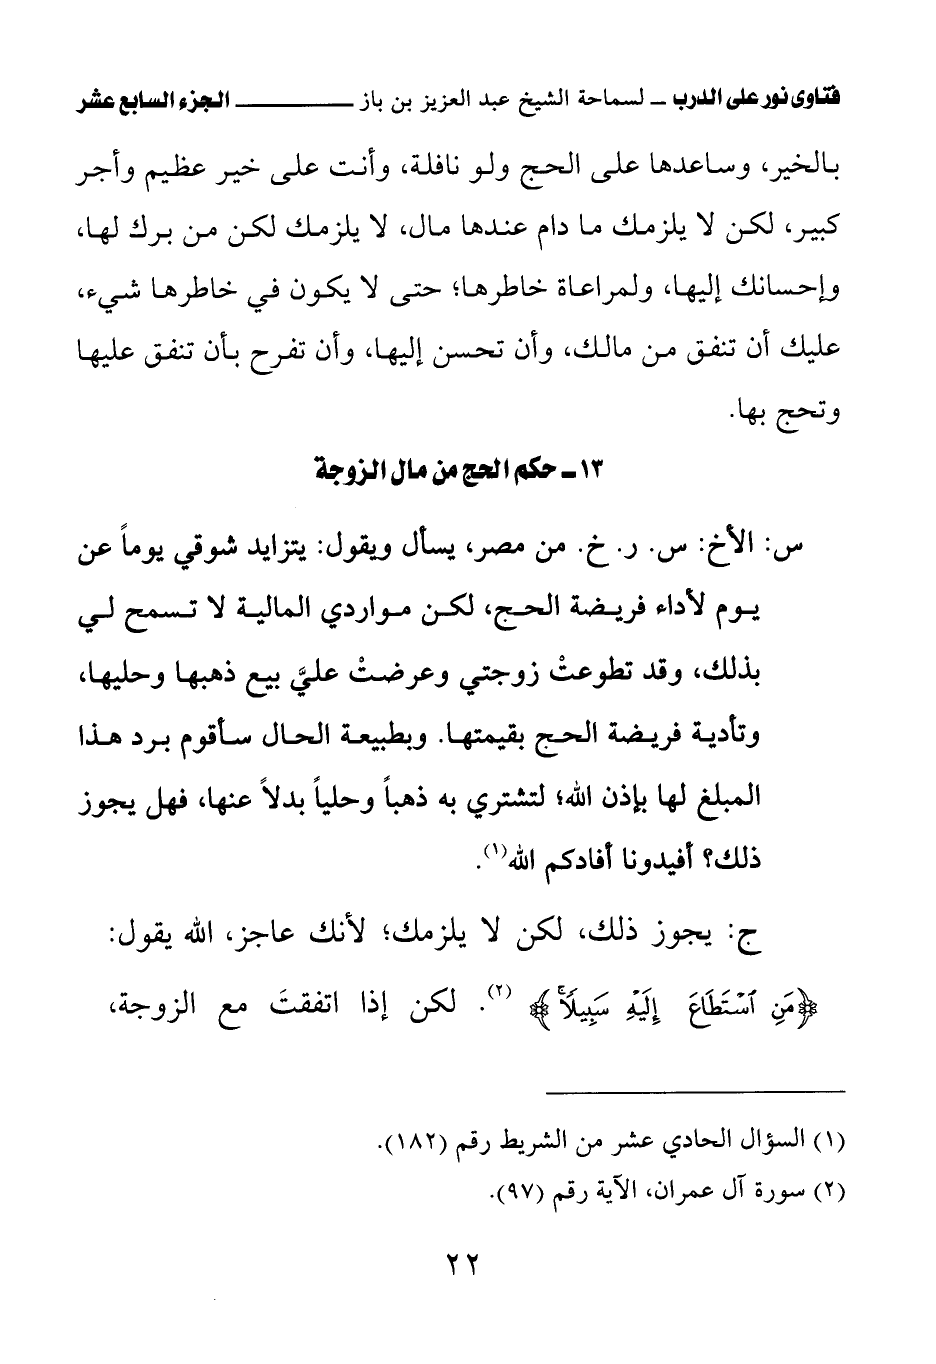 فتاوى نور على الدرب ــ لسماحة الشيخ عبد العزيز بن باز ـــــــــــــــ الجزء السابع عشر
بالخير، وساعدها على الحج ولو نافلة، وأنت على خير عظيم وأجر
كبير، لكن لا يلزمك ما دام عندها مال، لا يلزمك لكن من برك لها،
وإحسانك إليها، ولمراعاة خاطرها؛ حتى لا يكون في خاطرها شيء،
عليك أن تنفق من مالك، وأن تحسن إليها، وأن تفرح بأن تنفق عليها
وتحج بها.
١٣ ـ حكم الحج من مال الزوجة
س: الأخ: س. ر. خ. من مصر، يسأل ويقول: يتزايد شوقي يوماً عن
يوم لأداء فريضة الحج، لكن مواردي المالية لا تسمح لي
بذلك، وقد تطوعتْ زوجتي وعرضتْ عليَّ بيع ذهبها وحليها،
وتأدية فريضة الحج بقيمتها. وبطبيعة الحال سأقوم برد هذا
المبلغ لها بإذن الله؛ لتشتري به ذهباً وحلياً بدلاً عنها، فهل يجوز
ذلك؟ أفيدونا أفادكم الله(١).
ج: يجوز ذلك، لكن لا يلزمك؛ لأنك عاجز، الله يقول:
﴿مَنِ ٱسْتَطَاعَ إِلَيْهِ سَبِيلًاۚ﴾ (٢). لكن إذا اتفقتَ مع الزوجة،
(١) السؤال الحادي عشر من الشريط رقم (١٨٢).
(٢) سورة آل عمران، الآية رقم (٩٧).
٢٢